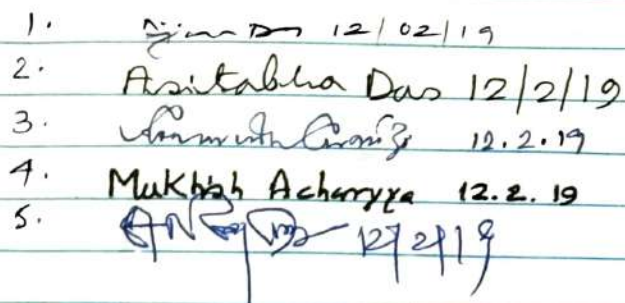 1. Das 12/02/19
2. Asitabha Das 12/2/19
3. 12.2.19
4. Mukhish Acharyya 12.2.19
5. 12/2/19